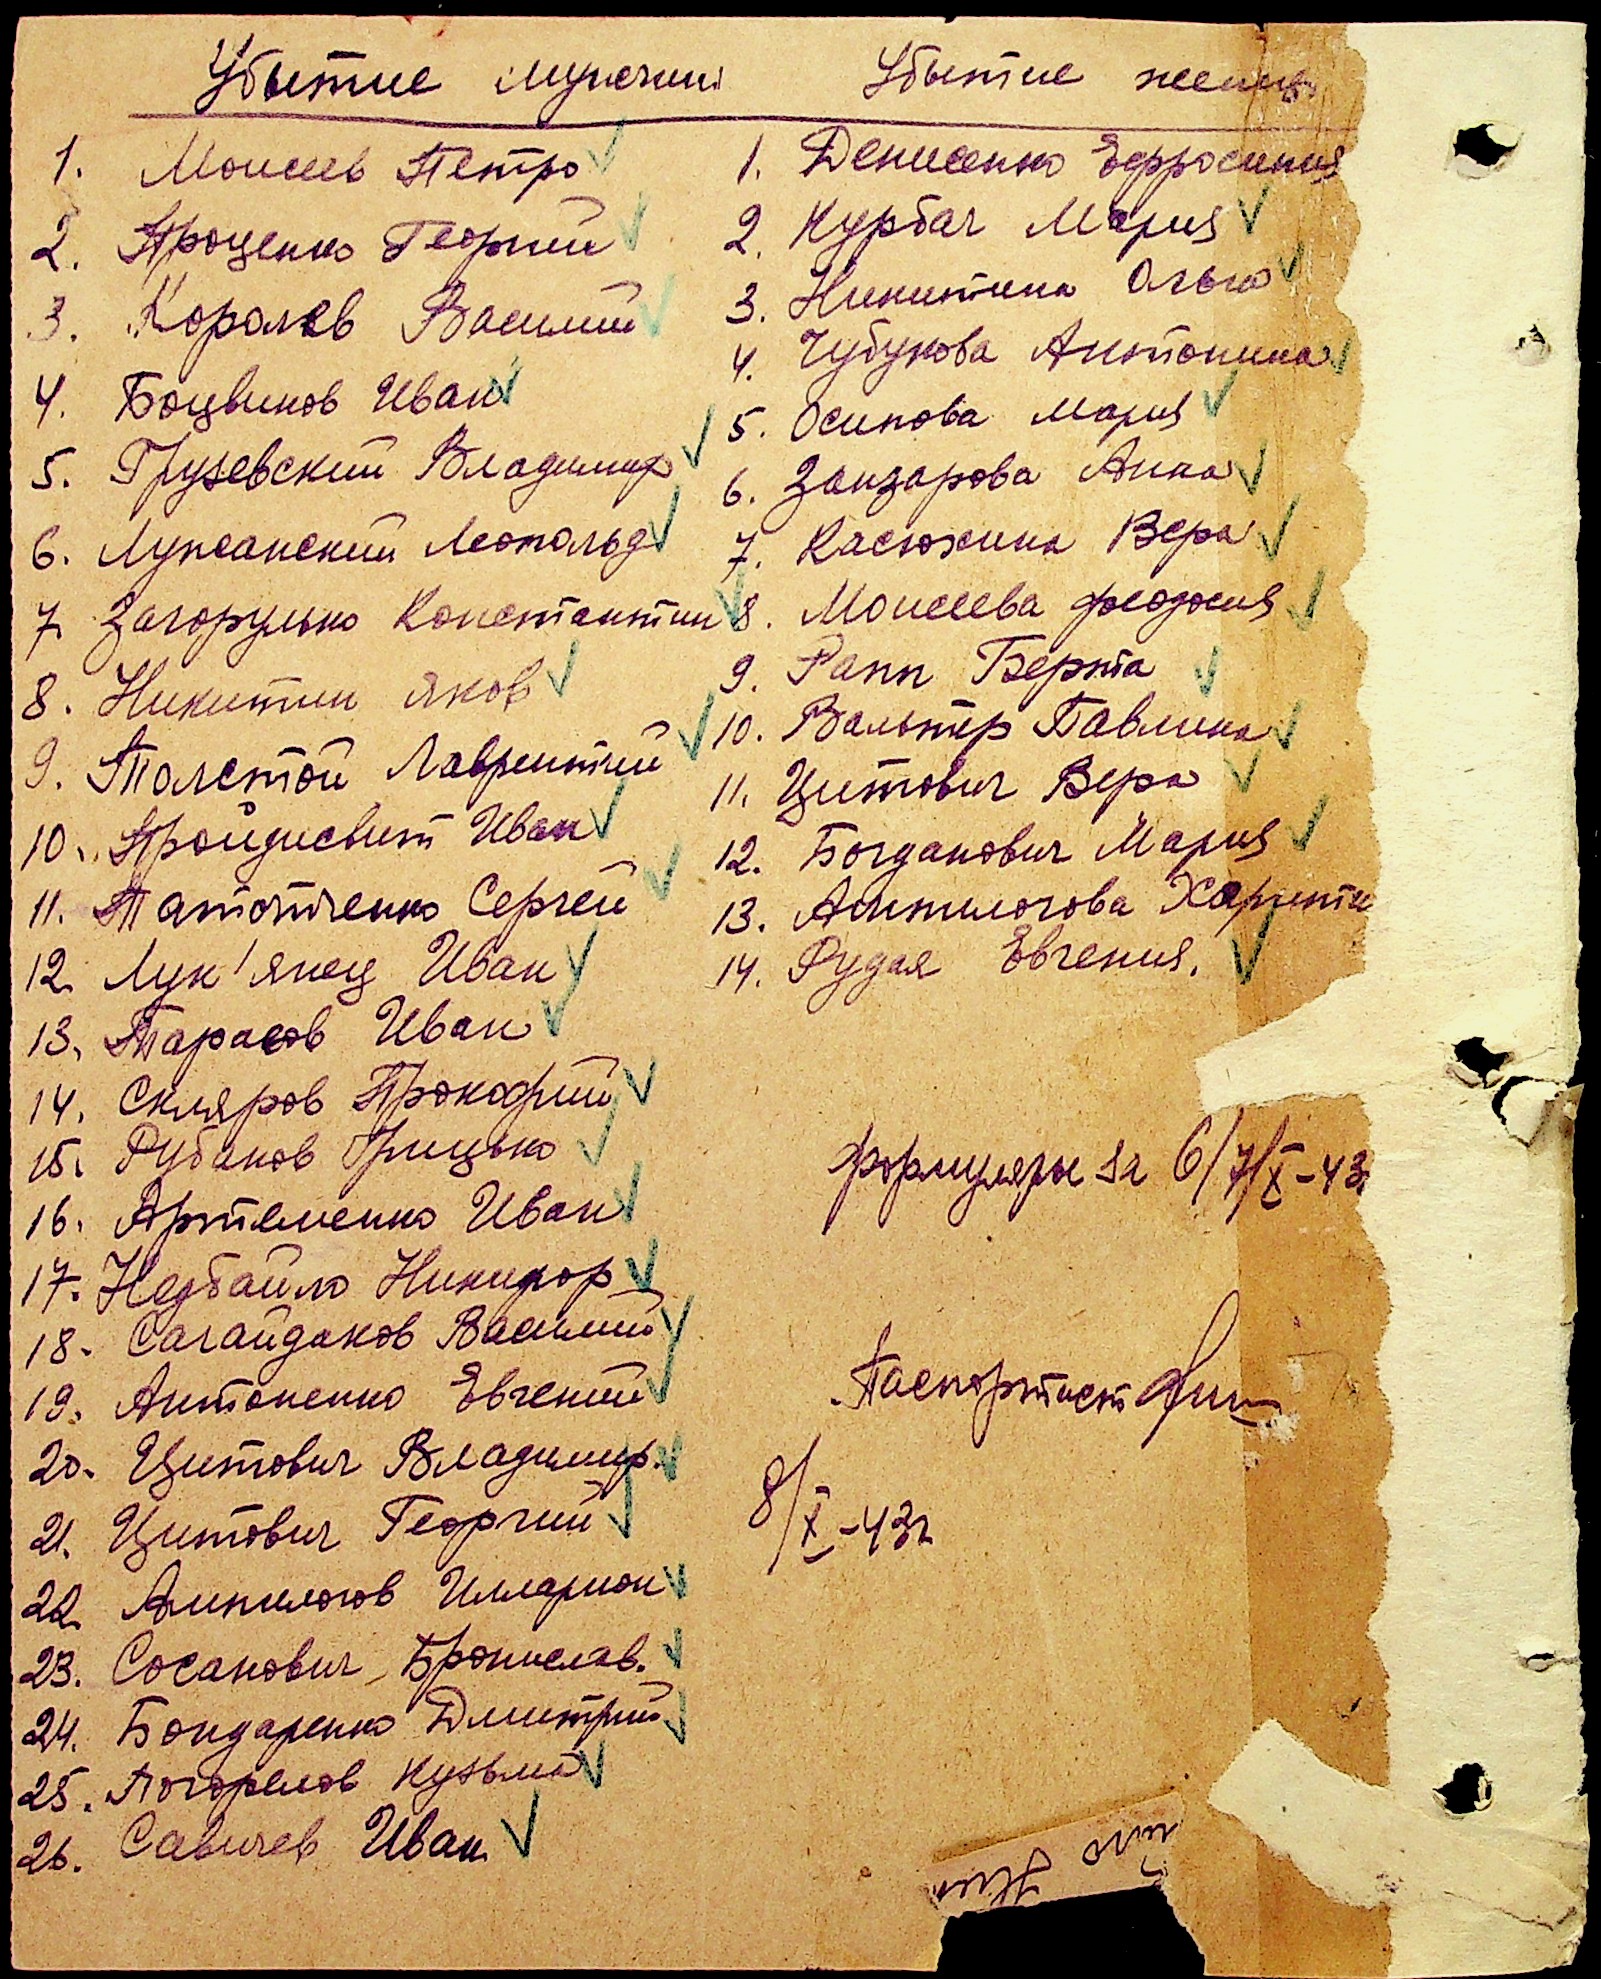 Убытие мужчин
1. Моисеев Петро
2. Проценко Георгий
3. Королев Василий
4. Боцвинов Иван
5. Грузевский Владимир
6. Лужанский Леопольд
7. Загорулько Константин
8. Никитин Яков
9. Толстой Лаврентий
10. Пройдисвит Иван
11. Татотченко Сергей
12. Лук'янец Иван
13. Тарасов Иван
14. Скляров Прокофий
15. Рубанов Грицько
16. Артеменко Иван
17. Недбайло Никифор
18. Сагайдаков Василий
19. Антоненко Евгений
20. Цитович Владимир.
21. Цитович Георгий
22. Ампилогов Илларион
23. Сосанович Бронислав.
24. Бондаренко Дмитрий
25. Погорелов Кузьма
26. Савичев Иван
Убытие женщ
1. Денисенко Ефросиния
2. Курбач Мария
3. Никитина Ольга
4. Чубукова Антонина
5. Осипова Мария
6. Занзарова Анна
7. Касюхина Вера
8. Моисеева Феодосия
9. Рапп Берта
10. Вальтер Павлина
11. Цитович Вера
12. Богданович Мария
13. Ампилогова Харити
14. Рудая Евгения.
формуляры за 6/7/X-43
Паспортист
8/X-43г